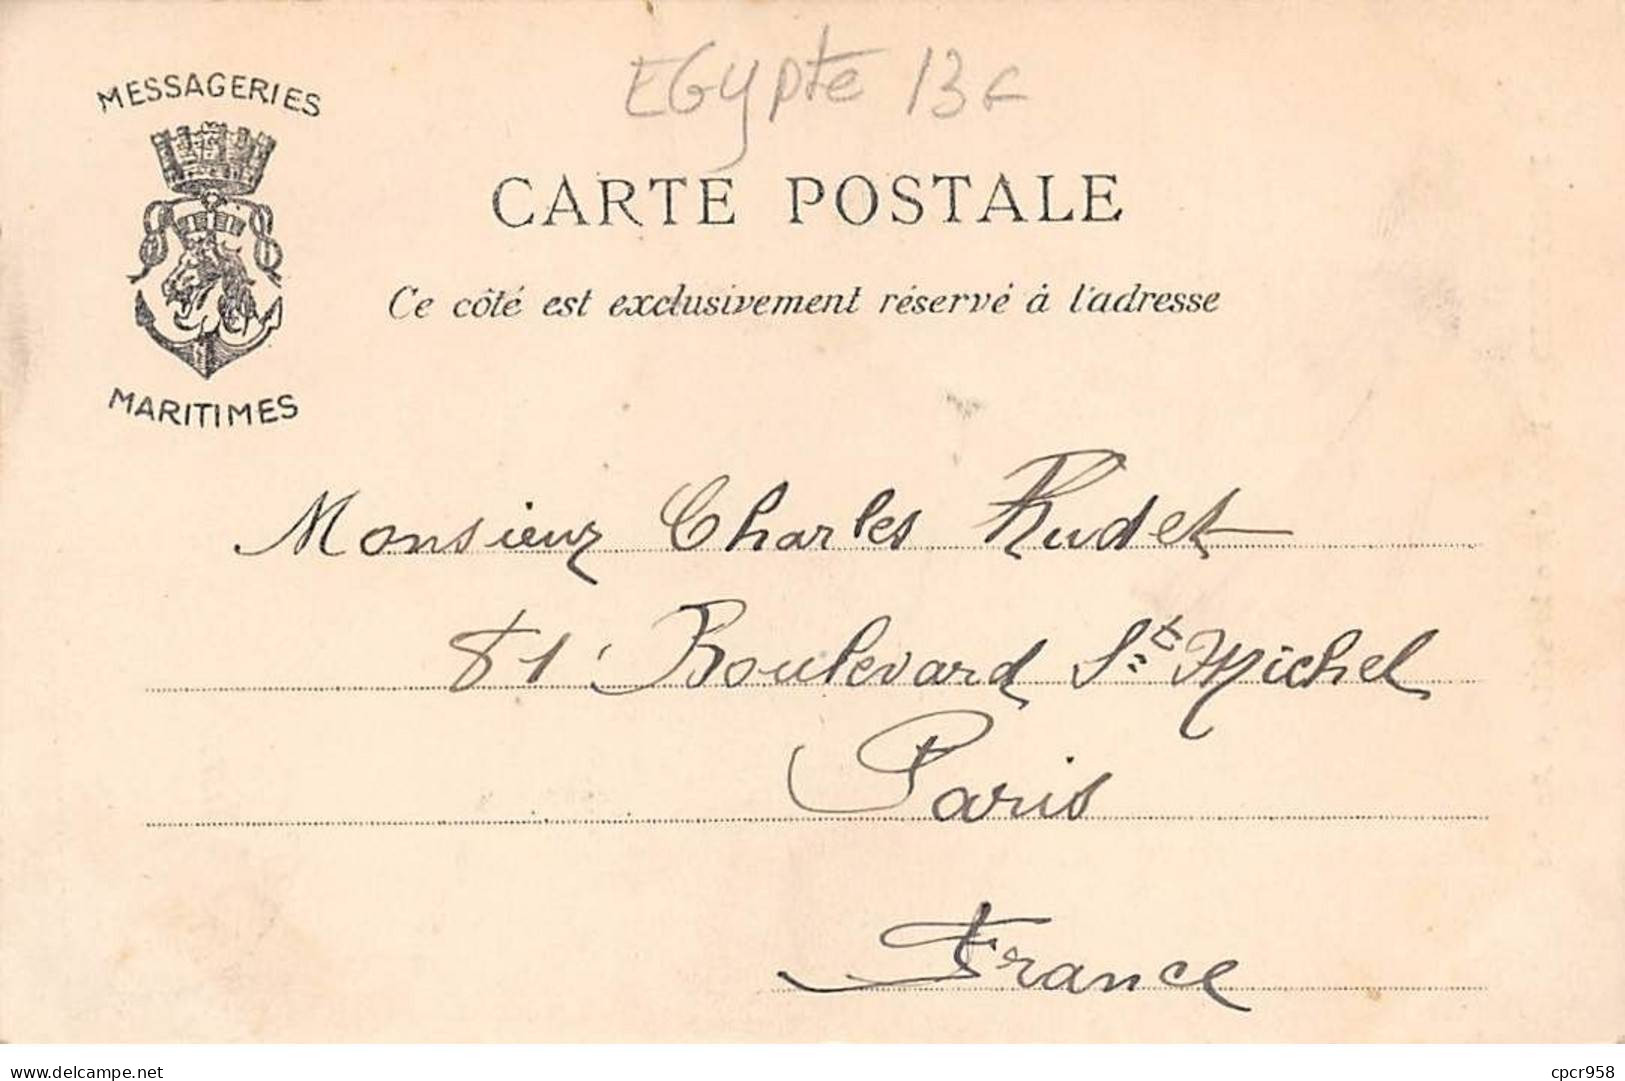 EGYpte 13F
MESSAGERIES
MARITIMES
CARTE POSTALE
Ce côté est exclusivement réservé à l'adresse
Monsieur Charles Rudet
81 Boulevard St Michel
Paris
France
www.delcampe.net
cpcr958